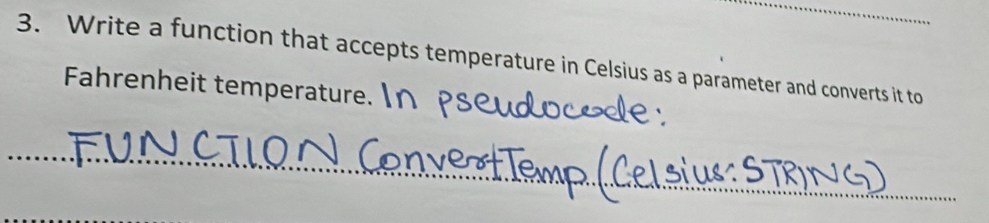 3. Write a function that accepts temperature in Celsius as a parameter and converts it to
Fahrenheit temperature. In pseudocode:
FUNCTION ConvertTemp (Celsius: STRING)